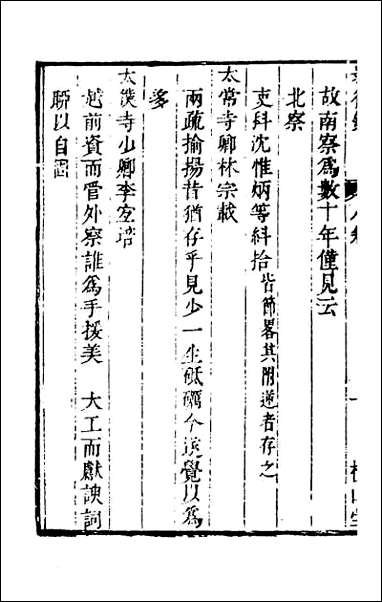 故南察爲數十年僅見云
北察
吏科沈惟炳等糾拾皆節畧其附逆者存之
太常寺卿林宗載
兩疏揄揚昔猶存乎見少一生砥礪今遂覺以爲
多
太僕寺少卿李
越前資而管外察誰爲手援美 大工而獻諛詞
聊以自